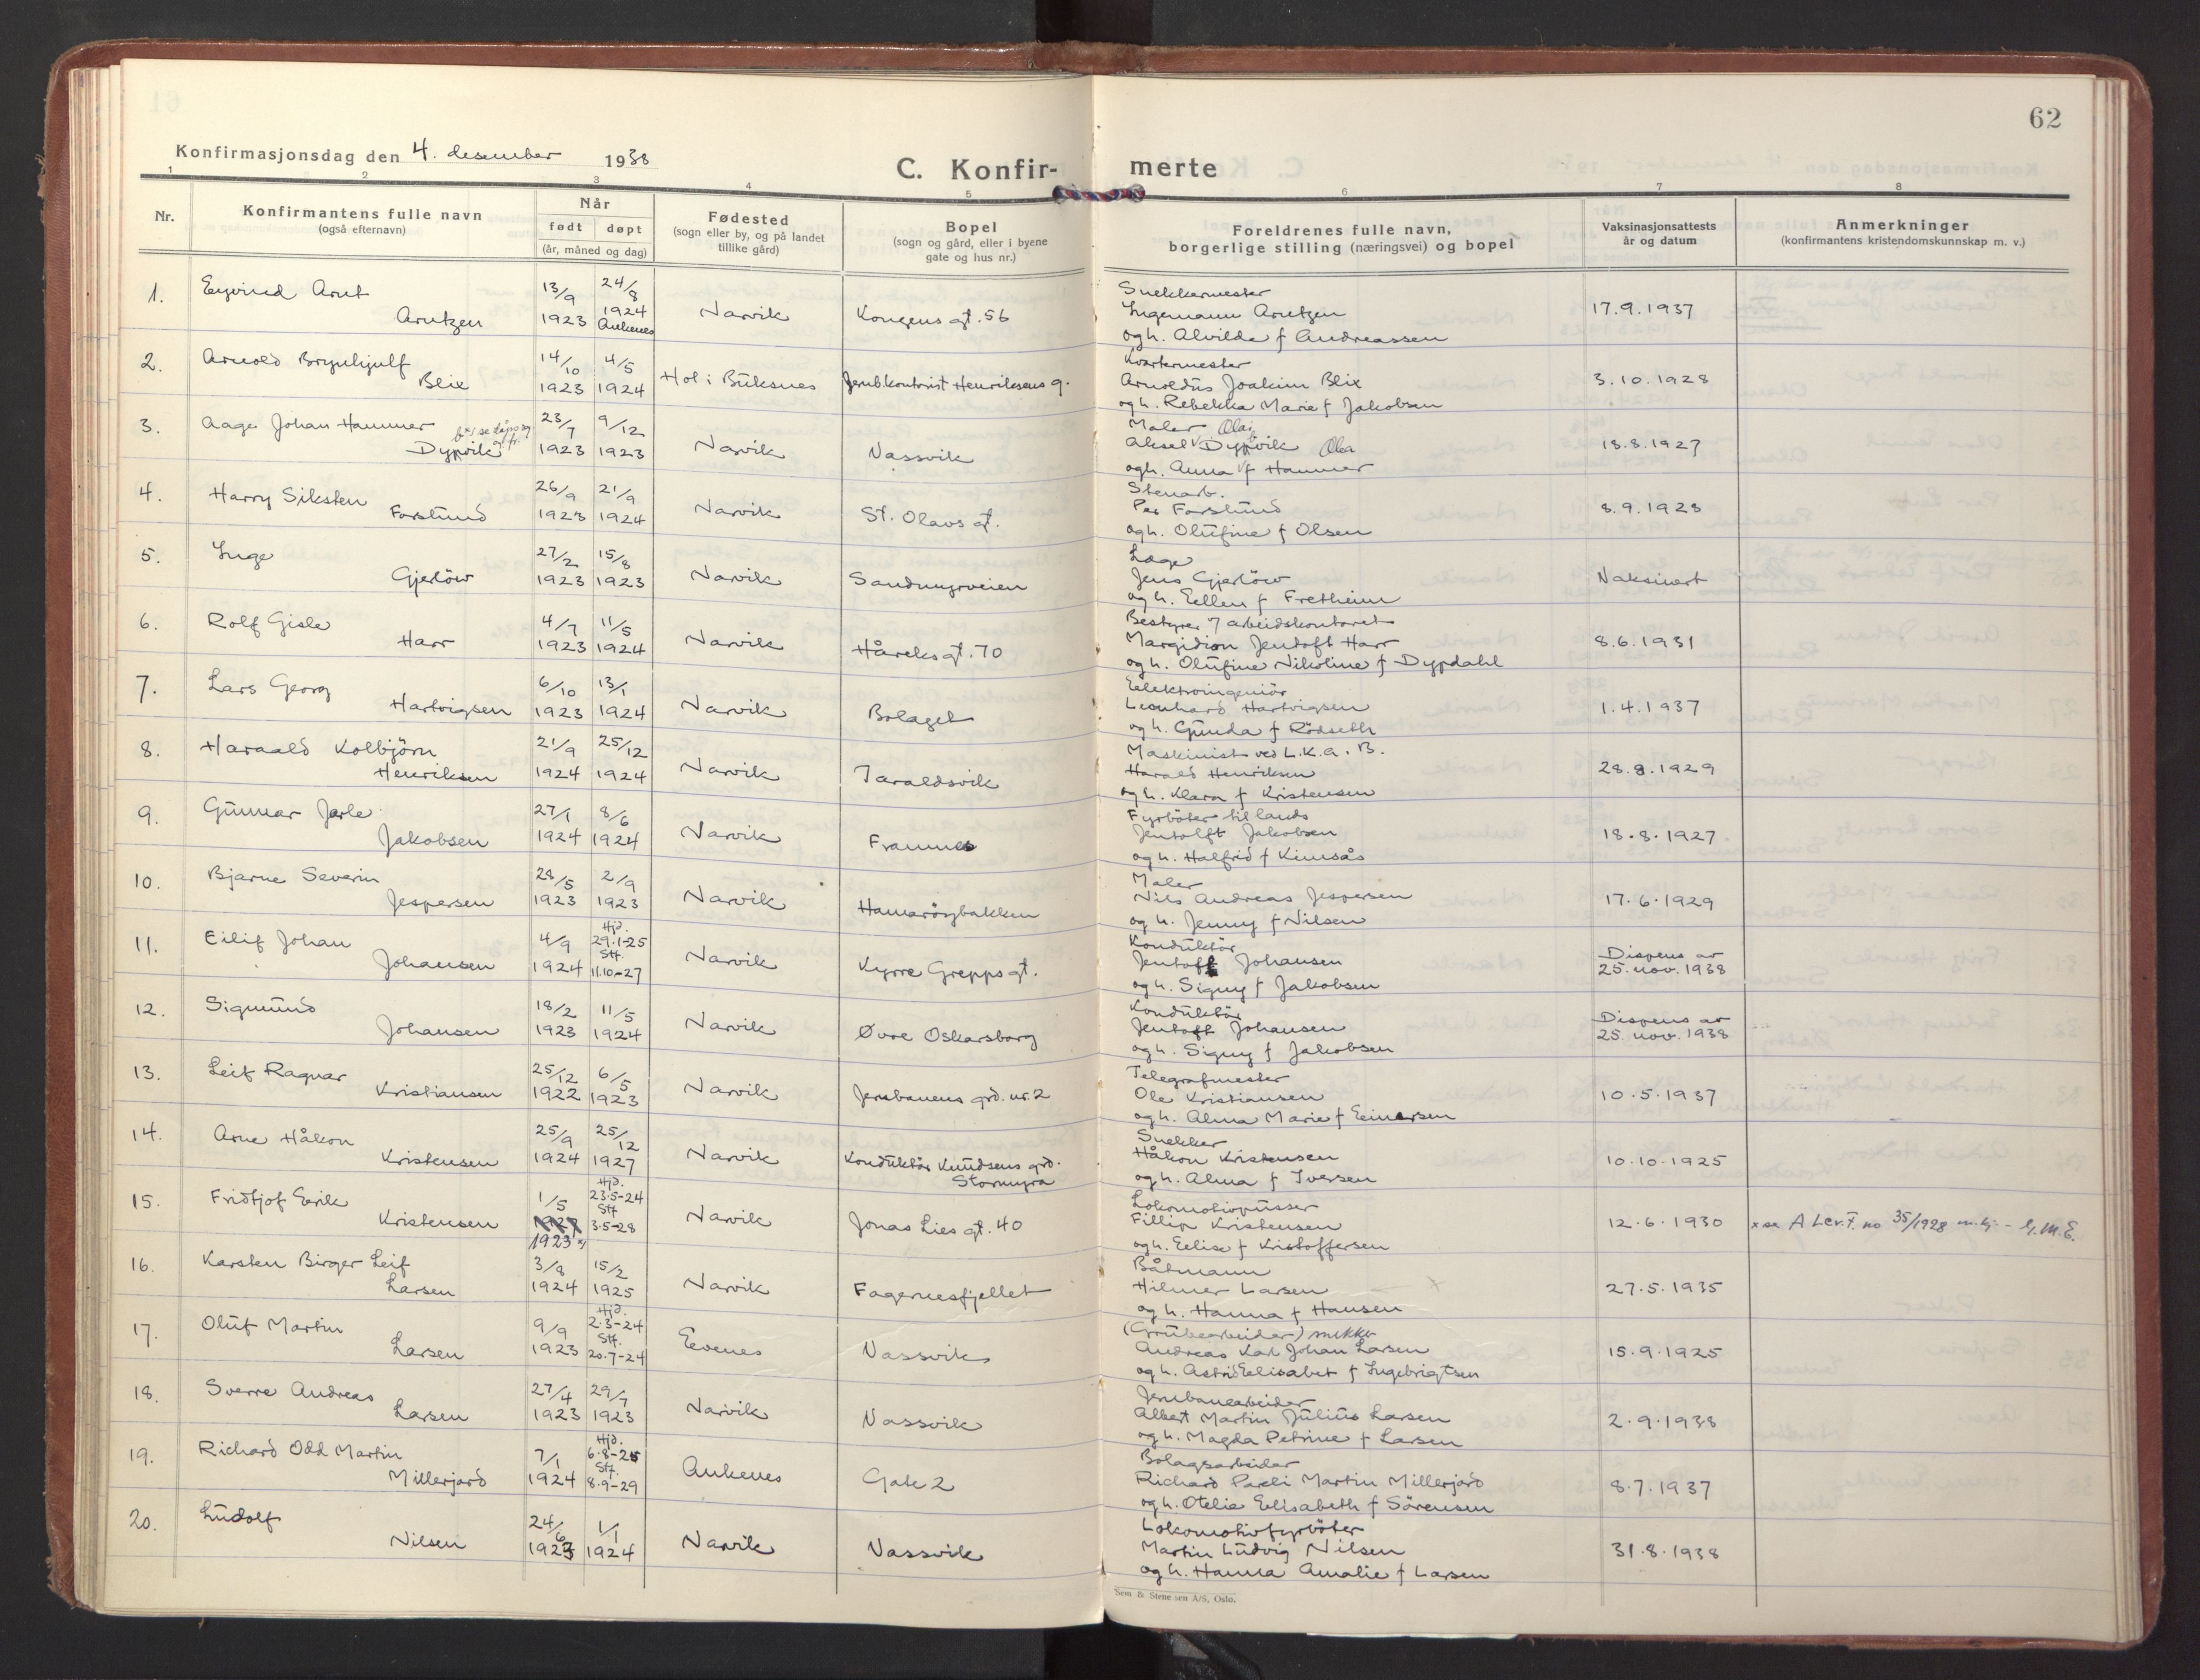 62
Konfirmasjonsdag den 4. desember 1938
C. Konfir- merte
1 2 3 4 5 6 7 8
Nr.
Konfirmantens fulle navn
(også efternavn)
Når
født døpt
(år, måned og dag)
Fødested
(sogn eller by, og på landet
tillike gård)
Bopel
(sogn og gård, eller i byene
gate og hus nr.)
Foreldrenes fulle navn,
borgerlige stilling (næringsvei) og bopel
Vaksinasjonsattests
år og datum
Anmerkninger
(konfirmantens kristendomskunnskap m. v.)
1. Eyvind Arnt Arntzen 13/9 1923 24/8 1924 Ankenes Narvik Kongens gt. 56
Snekkermester
Ingemann Arntzen
og h. Alvilde f Andreassen
17.9.1937
2. Arnold Brynhjulf Blix 14/10 1923 4/5 1924 Hol i Buksnes Jernb.kontorist Henriksens g.
Kvartermester
Arnoldus Joakim Blix
og h. Rebekka Marie f Jakobsen
3.10.1928
3. Aage Johan Hammer Dypvik 23/7 1923 9/12 1923 Narvik Vassvik
Maler Olai
Aksel Dypvik
og h. Anna f Hammer
18.8.1927
4. Harry Siksten Forslund 26/9 1923 21/9 1924 Narvik St. Olavs gt.
Stenarb.
Per Forslund
og h. Olufine f Olsen
8.9.1928
5. Inge Gjerløw 27/2 1923 15/8 1923 Narvik Sandmyrveien
Læge
Jens Gjerløw
og h. Eellen f Fretheim
Vaksinert
6. Rolf Gisle Harr 4/7 1923 11/5 1924 Narvik Håreks gt. 70
Bestyrer 7 arbeidskontoret
Margidion Jentoft Harr
og h. Olufine Nikoline f Dypdahl
8.6.1931
7. Lars Georg Hartvigsen 6/10 1923 13/1 1924 Narvik Bolaget
Eelektroingeniör
Leonhard Hartvigsen
og h. Gunda f Rödseth
1.4.1937
8. Haraald Kolbjörn Henriksen 21/9 1924 25/12 1924 Narvik Taraldsvik
Maskinist ved L.K.A.B.
Harald Henriksen
og h. Klara f Kristensen
28.8.1929
9. Gunnar Jarle Jakobsen 27/1 1924 8/6 1924 Narvik Framnes
Fyrböter til lands
Jentolft Jakobsen
og h. Halfrid f Kimsås
18.8.1927
10. Bjarne Severin Jespersen 28/5 1923 2/9 1923 Narvik Hamaröybakken
Maler
Nils Andreas Jespersen
og h. Jenny f Nilsen
17.6.1929
11. Eilif Johan Johansen 4/9 1924 Hjd. 29.1-25 Stf. 11.10-27 Narvik Kyrre Grepps gt.
Konduktör
Jentoft Johansen
og h. Signy f Jakobsen
Dispens av
25. nov. 1938
12. Sigmund Johansen 18/2 1923 11/5 1924 Narvik Øvre Oskarsborg
Konduktör
Jentoft Johansen
og h. Signy f Jakobsen
Dispens av
25. nov. 1938
13. Leif Ragnar Kristiansen 25/12 1922 6/5 1923 Narvik Jernbanens grd. nr. 2
Telegrafmester
Ole Kristiansen
og h. Alma Marie f Eeinarsen
10.5.1937
14. Arne Håkon Kristensen 25/9 1924 25/12 1927 Narvik Konduktör Knudsens grd. Stormyra
Snekker
Håkon Kristensen
og h. Alma f Iversen
10.10.1925
15. Fridtjof Eerik Kristensen 1/5 1923 x) Hjd. 23.5-24 Stf 3.5-28 Narvik Jonas Lies gt. 40
Lokomotivpusser
Fillip Kristensen
og h. Eelise f Kristoffersen
12.6.1930 x se A Lev.F. no 35/1928
16. Karsten Birger Leif Larsen 3/8 1924 15/2 1925 Narvik Fagernesfjellet
Båtmann
Hilmer Larsen
og h. Hanna f Hansen
27.5.1935
17. Oluf Martin Larsen 9/9 1923 Hjd. 2.3-24 Stf. 20.7-24 Eevenes Vassvik
(Grubearbeider) snekker
Andreas Karl Johan Larsen
og h. Astrid Eelisabet f Ingebrigtsen
15.9.1925
18. Sverre Andreas Larsen 27/4 1923 29/7 1923 Narvik Vassvik
Jernbanearbeider
Albert Martin Julius Larsen
og h. Magda Petrine f Larsen
2.9.1938
19. Richard Odd Martin Millerjord 7/1 1924 Hjd. 6.8-25 Stf. 8.9-29 Ankenes Gate 2
Bolagsarbeider
Richard Pareli Martin Millerjord
og h. Otelie Eelisabeth f Sörensen
8.7.1937
20. Ludolf Nilsen 24/6 1923 1/1 1924 Narvik Vassvik
Lokomotivfyrböter
Martin Ludvig Nilsen
og h. Hanna Amalie f Larsen
31.8.1938
Sem & Stenersen A/S, Oslo.